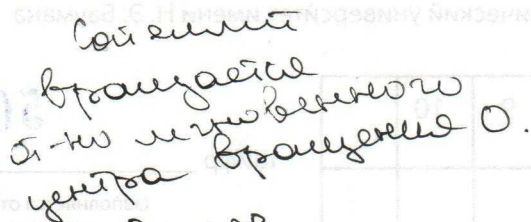 Сателлит
вращается
от-но мгновенного
центра вращения О.